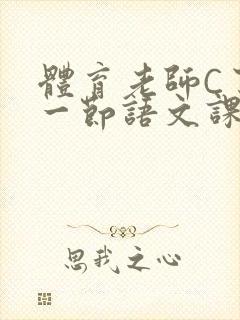 體育老師C了
一節語文課
思我之心